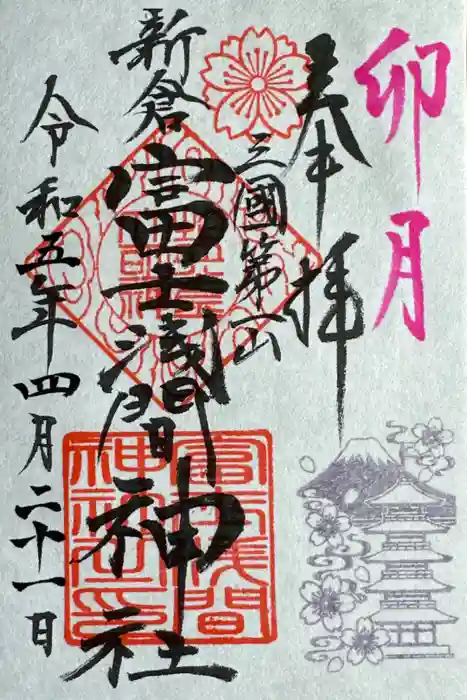 卯月
奉拝
三國第一山
新倉
富士浅間神社
令和五年四月二十一日
富士浅間
神社之印